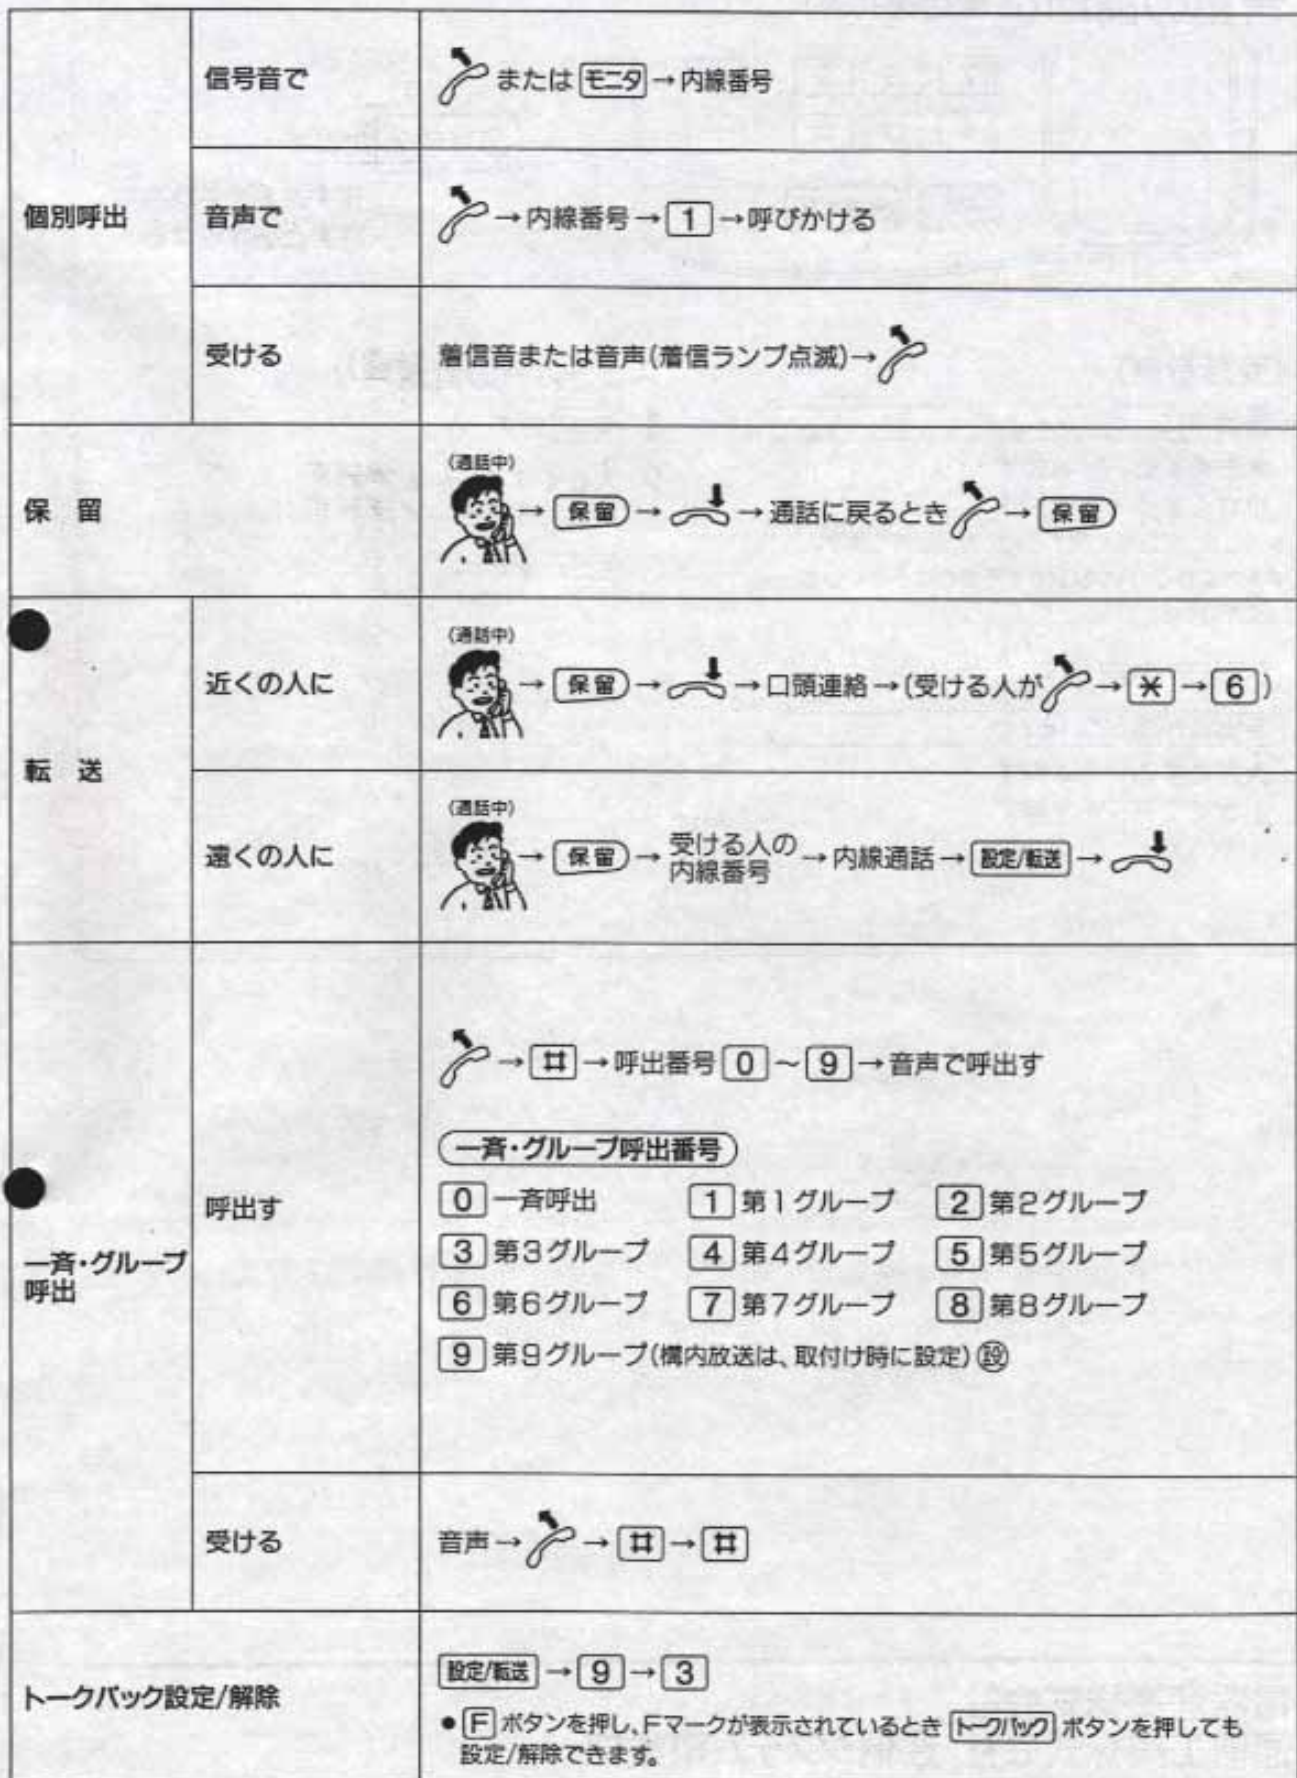 個別呼出
信号音で
または モニタ → 内線番号
音声で
→ 内線番号 → 1 → 呼びかける
受ける
着信音または音声(着信ランプ点滅)→
保 留
(通話中)
→ 保留 → → 通話に戻るとき → 保留
転 送
近くの人に
(通話中)
→ 保留 → → 口頭連絡 → (受ける人が → * → 6)
遠くの人に
(通話中)
→ 保留 → 受ける人の
内線番号 → 内線通話 → 設定/転送 →
一斉・グループ
呼出
呼出す
→ # → 呼出番号 0 ~ 9 → 音声で呼出す
一斉・グループ呼出番号
0 一斉呼出 1 第1グループ 2 第2グループ
3 第3グループ 4 第4グループ 5 第5グループ
6 第6グループ 7 第7グループ 8 第8グループ
9 第9グループ(構内放送は、取付け時に設定) 設
受ける
音声 → → # → #
トークバック設定/解除
設定/転送 → 9 → 3
● F ボタンを押し、Fマークが表示されているとき トークバック ボタンを押しても
設定/解除できます。